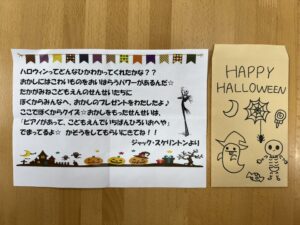 ハロウィンってどんなひかわかってくれたかな？？
おかしにはこわいものをおいはらうパワーがあるんだ☆
たかがみねこどもえんのせんせいたちに
ぼくからみなへ、おかしのプレゼントをわたしたよ♪
ここでぼくからクイズ☆おかしをもったせんせいは、
「ピアノがあって、こどもえんでいちばんひろいおへや」
でまってるよ☆　かそうをしてもらいにきてね！！
ジャック・スケリントンより
HAPPY
HALLOWEEN